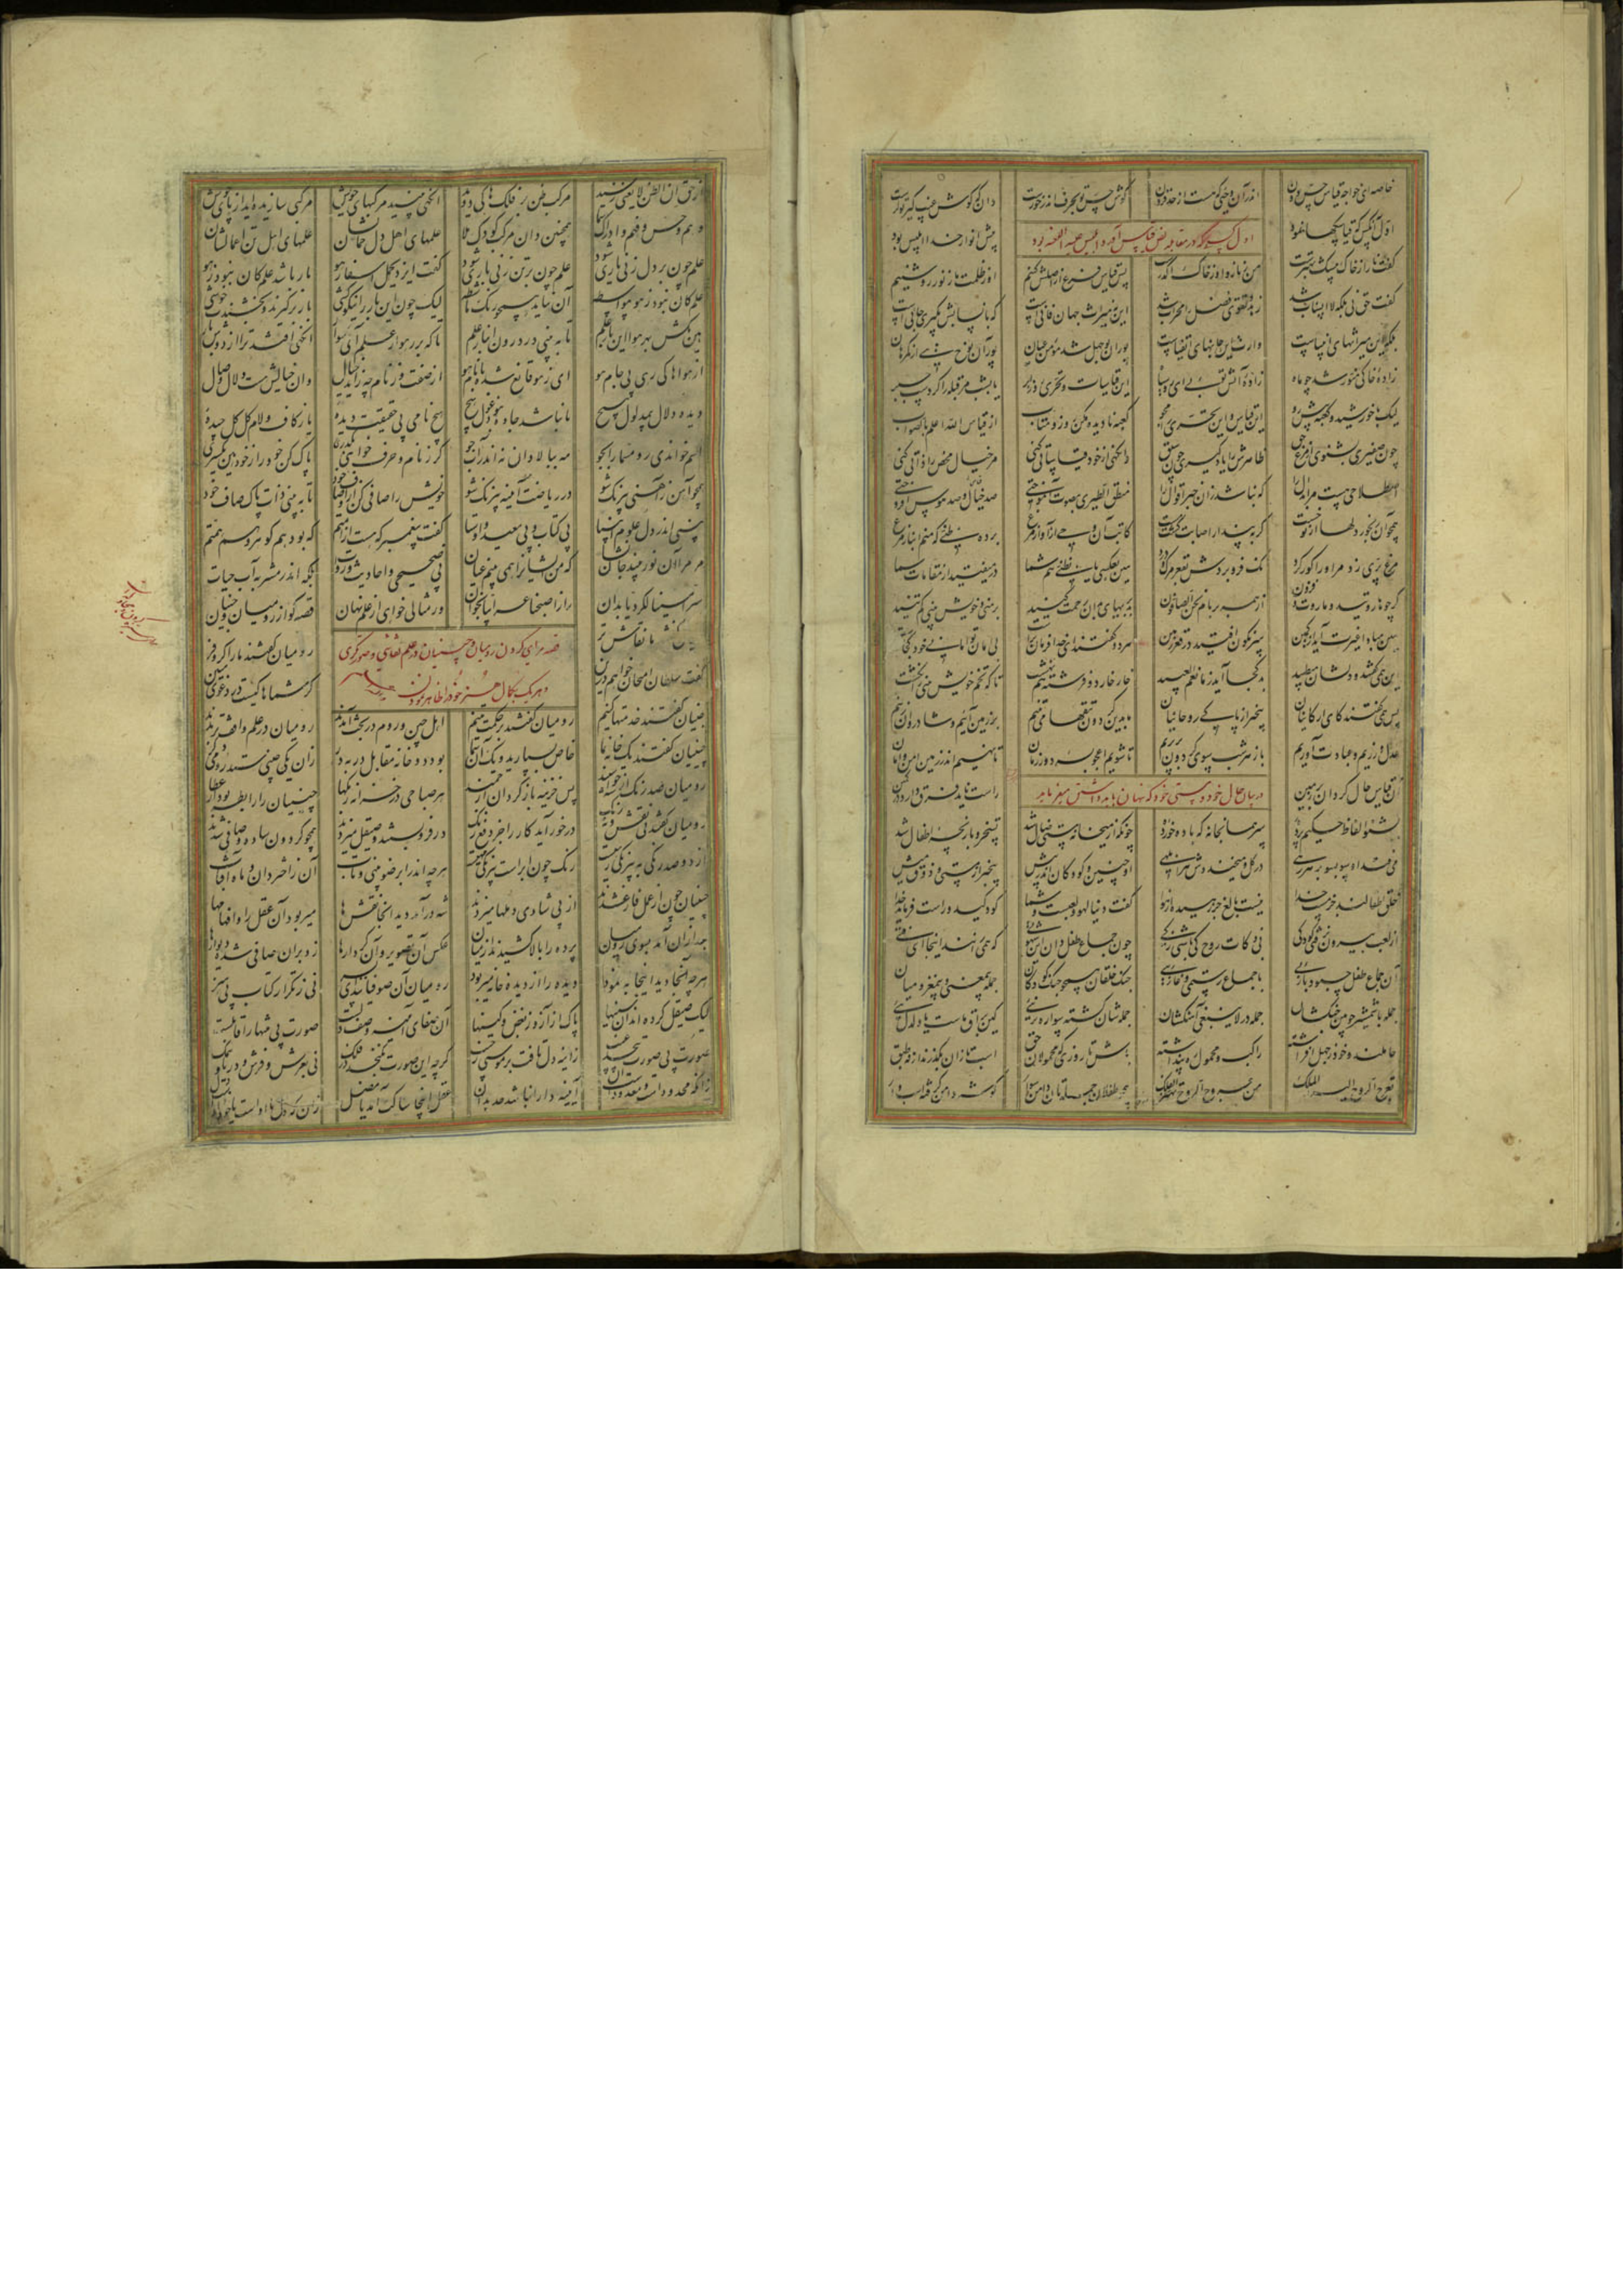 خاصه ای خواجه قیاس حس دون اندر آن وحیی که هست از حد فزون گوش حس تو بحرف ار در خورست دان که گوش غیب گیر تو کرست
اول آنکس کین قیاسکها نمود پیش انوار خدا ابلیس بود
اول کسی که در مقابله نص قیاس آورد ابلیس علیه اللعنه بود
گفت نار از خاک بیشک بهترست من ز نار و او ز خاک اکدرست پس قیاس فرع از اصلش کنیم او ز ظلمت ما ز نور روشنیم
گفت حق نی بلکه لا انساب شد زهد و تقوی فضل را محراب شد این نه میراث جهان فانی است که بانسابش بگیری جانی است
بلکه این میراثهای انبیاست وارث این جانهای اتقیاست پور آن بوجهل شد مؤمن عیان پور آن نوح نبی از گمرهان
زاده خاکی منور شد چو ماه زاده آتش توئی ای رو سیاه این قیاسات و تحری روز ابر یا بشب مر قبله را کردست حبر
لیک با خورشید و کعبه پیش رو این قیاس و این تحری را مجو کعبه نادیده مکن رو زو متاب از قیاس الله اعلم بالصواب
چون صفیری بشنوی از مرغ حق ظاهرش را یاد گیری چون سبق وانگهی از خود قیاساتی کنی مر خیال محض را ذاتی کنی
اصطلاحی هست مر ابدال را که نباشد زان خبر اقوال را منطق الطیری بصوت آموختی صد خیال و صد هوس افروختی
همچو آن رنجور دلها از تو خست کر بپندار اصابت گشت مست کاتب آن وحی از آواز مرغ برده ظنی که منم انباز مرغ
مرغ پری زد مر او را کور کرد نک فرو بردش بقعر مرگ و درد هین بعکسی یا بظنی هم شما در میفتید از مقامات سما
گرچه هاروتید و ماروت و فزون از همه بر بام نحن الصافون بر بدیهای بدان رحمت کنید بر منی و خویش بینی کم تنید
هین مبادا غیرت آید از کمین سرنگون افتید در قعر زمین هر دو گفتند ای خدا فرمان تراست بی امان تو امانی خود کجاست
این همی گفتند و دلشان میطپید بد کجا آید ز ما نعم العبید خار خار دو فرشته هم نهشت تا که تخم خویش بینی را نکشت
پس همی گفتند کای ارکانیان بیخبر از پاکی روحانیان ما بدین گردون تتقها می تنیم بر زمین آئیم و شادروان زنیم
عدل ورزیم و عبادت آوریم باز هر شب سوی گردون بر پریم تا شویم اعجوبه دور زمان تا نهیم اندر زمین امن و امان
آن قیاس حال گردان بر زمین راست ناید فرق دارد در کمین
در بیان حال خود و مستی خود که پنهان باید داشتن میفرماید
بشنو الفاظ حکیم پرده سر همانجا نه که باده خورده چونکه از میخانه مستی ضال شد تسخر و بازیچه اطفال شد
می فتد او سو بسو بر هر رهی در گل و میخنددش هر ابلهی او چنین و کودکان اندر پیش بیخبر از مستی و ذوق میش
خلق اطفالند جز مست خدا نیست بالغ جز رهیده از هوا گفت دنیا لهو و لعبست و شما کودکید و راست فرماید خدا
از لعب بیرون نرفتی کودکی بی ذکات روح کی باشی زکی چون جماع طفل دان این شهوتی که همی رانند اینجا ای فتی
آن جماع طفل چبود بازیی با جماع رستمی و غازیی جنگ خلقان همچو جنگ کودکان جمله بیمعنی و بیمغز و مهان
جمله با شمشیر چوبین جنگشان جمله در لاینفعی آهنگشان جمله شان گشته سواره بر نیی کین براق ماست یا دلدل پیی
حاملند و خود ز جهل افراشته راکب و محمول ره پنداشته باش تا روزی که محمولان حق اسب تازان بگذرند از نه طبق
تعرج الروح الیه و الملک من عروج الروح یهتز الفلک همچو طفلان جمله تان دامن سوار گوشه دامن گرفته اسب وار
از حق ان الظن لا یغنی رسید مرکب ظن بر فلکها کی دوید
وهم و حس و فکر و ادراک شما همچنین دان مرکب کودک هلا علمهای اهل دل حمالشان علمهای اهل تن احمالشان
علم چون بر دل زنی یاری شود علم چون بر تن زنی باری شود گفت ایزد یحمل اسفاره بار باشد علم کان نبود ز هو
علم کان نبود ز هو بیواسطه آن نپاید همچو رنگ ماشطه لیک چون این بار را نیکو کشی بار برگیرند و بخشندت خوشی
هین مکش بهر هوا این بار علم تا به بینی در درون انبار علم تا که بر رهوار علم آئی سوار آنگهی افتد ترا از دوش بار
از هواها کی رهی بی جام هو ای ز هو قانع شده با نام هو از صفت وز نام چه زاید خیال وان خیالش هست دلال وصال
دیده دلال بی مدلول هیچ تا نباشد جاده نبود غول هیچ هیچ نامی بی حقیقت دیده یا ز کاف و لام گل گل چیده
اسم خواندی رو مسما را بجو مه ببالا دان نه اندر آب جو گر ز نام و حرف خواهی بگذری پاک کن خود را ز خود هین یکسری
همچو آهن ز آهنی بیرنگ شو در ریاضت آینه بیزنگ شو خویش را صافی کن از اوصاف خود تا به بینی ذات پاک صاف خود
بینی اندر دل علوم انبیا بی کتاب و بی معید و اوستا گفت پیغمبر که هست از امتم که بود هم گوهر و هم همتم
مر مرا زان نور بیند جانشان که من ایشان را همی بینم عیان بی صحیحین و احادیث و روات بلکه اندر مشرب آب حیات
سر امسینا لکردیا بدان راز اصبحنا عرابیا بخوان ور مثالی خواهی از علم نهان قصه گو از رومیان و چینیان
قصه مرای کردن رومیان و چینیان در علم نقاشی و صورتگری
و هر یک کمال هنر خود را ظاهر نمودن
چینیان گفتند ما نقاش تر رومیان گفتند ما را کر و فر
گفت سلطان امتحان خواهم درین کز شماها کیست در دعوی گزین
چینیان گفتند خدمتها کنیم رومیان گفتند بر حکمت تنیم اهل چین و روم در بحث آمدند رومیان در علم واقفتر بدند
چینیان گفتند یک خانه بما خاص بسپارید و یک آن شما بود دو خانه مقابل در بدر زان یکی چینی ستد رومی دگر
چینیان صد رنگ از شه خواستند پس خزینه باز کرد آن ارجمند هر صباحی در خزانه رنگها چینیان را راتبه بود از عطا
رومیان گفتند نی نقش و نه رنگ در خور آید کار را جز دفع زنگ در فرو بستند و صیقل میزدند همچو گردون ساده و صافی شدند
از دو صد رنگی به بیرنگی رهیست رنگ چون ابرست و بیرنگی مهیست هرچه اندر ابر ضو بینی و تاب آن ز اختر دان و ماه و آفتاب
چینیان چون از عمل فارغ شدند از پی شادی دهلها میزدند شه در آمد دید آنجا نقشها میربود آن عقل را و فهم را
بعد از آن آمد بسوی رومیان پرده را بالا کشیدند از میان عکس آن تصویر و آن کردارها زد بر آن صافی شده دیوارها
هرچه آنجا دید اینجا به نمود دیده را از دیده خانه میربود رومیان آن صوفیانند ای پدر نی ز تکرار و کتاب و نی هنر
لیک صیقل کرده اند آن سینها پاک ز آز و حرص و بخل و کینها آن صفای آینه وصف دلست صورت بی منتها را قابلست
صورت بی صورت بیحد غیب ز آینه دل تافت بر موسی ز جیب گرچه این صورت نگنجد در فلک نی بعرش و فرش و دریا و سمک
زانکه محدودست و معدودست آن آینه دل را نباشد حد بدان عقل اینجا ساکت آمد یا مضل زانکه دل با اوست یا خود اوست دل